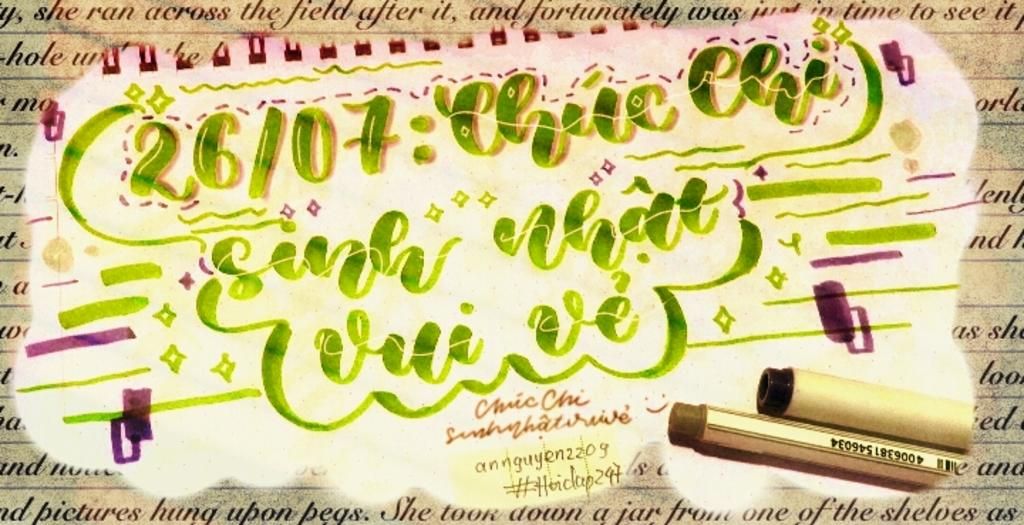 y, she ran across the field after it, and fortunately was just in time to see it p
-hole un
26/07: Chúc Chi
sinh nhật
vui vẻ
Chúc Chi
sinh nhật vui vẻ :)
annguyen2209
##Hoidap247
4006381546034
as she
look
and
nd pictures hung upon pegs. She took down a jar from one of the shelves as